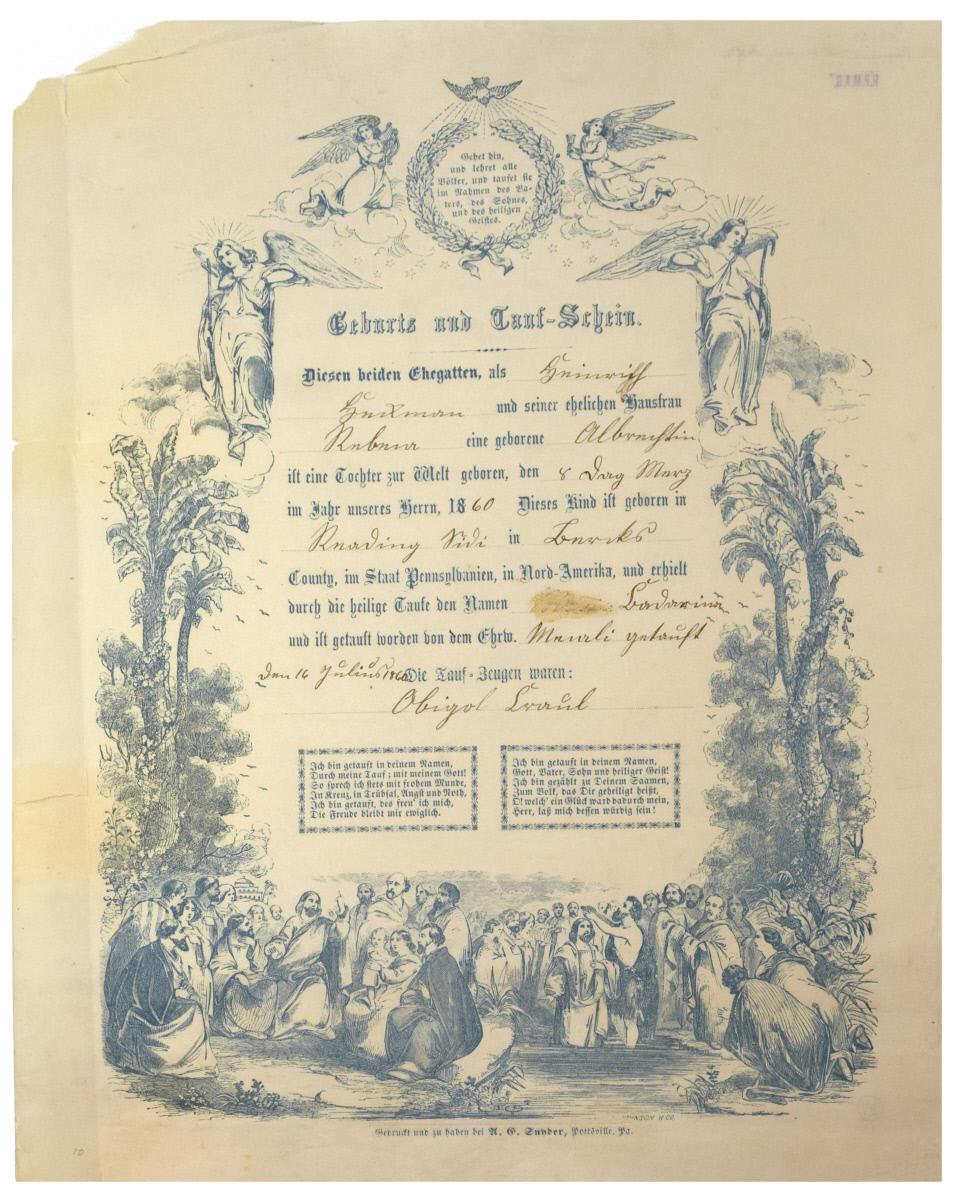 Gehet hin,
und lehret alle
Völker, und taufet sie
im Nahmen des Va-
ters, des Sohnes,
und des heiligen
Geistes.
Geburts und Tauf-Schein.
Diesen beiden Ehegatten, als Heinrich
Heckman und seiner ehelichen Hausfrau
Rebeca eine geborene Albrechtin
ist eine Tochter zur Welt geboren, den 8 Dag Merz
im Jahr unseres Herrn, 1860 Dieses Kind ist geboren in
Reading Sidi in Bercks
County, im Staat Pennsylvanien, in Nord-Amerika, und erhielt
durch die heilige Taufe den Namen Cadarina
und ist getauft worden von dem Ehrw. getauft
den 16 Julius 1860 Die Tauf-Zeugen waren:
Obigol Craul
Ich bin getauft in deinem Namen,
Durch meine Tauf; mit meinem Gott!
So sprech ich stets mit frohem Munde,
In Kreuz, in Trübsal, Angst und Noth,
Ich bin getauft, des freu' ich mich,
Die Freude bleibt mir ewiglich.
Ich bin getauft in deinem Namen,
Gott, Vater, Sohn und heiliger Geist!
Ich bin gezählt zu Deinem Saamen,
Zum Volk, das Dir geheiligt heißt,
O! welch' ein Glück ward dadurch mein,
Herr, laß mich dessen würdig sein!
Gedruckt und zu haben bei A. E. Snyder, Pottsville, Pa.